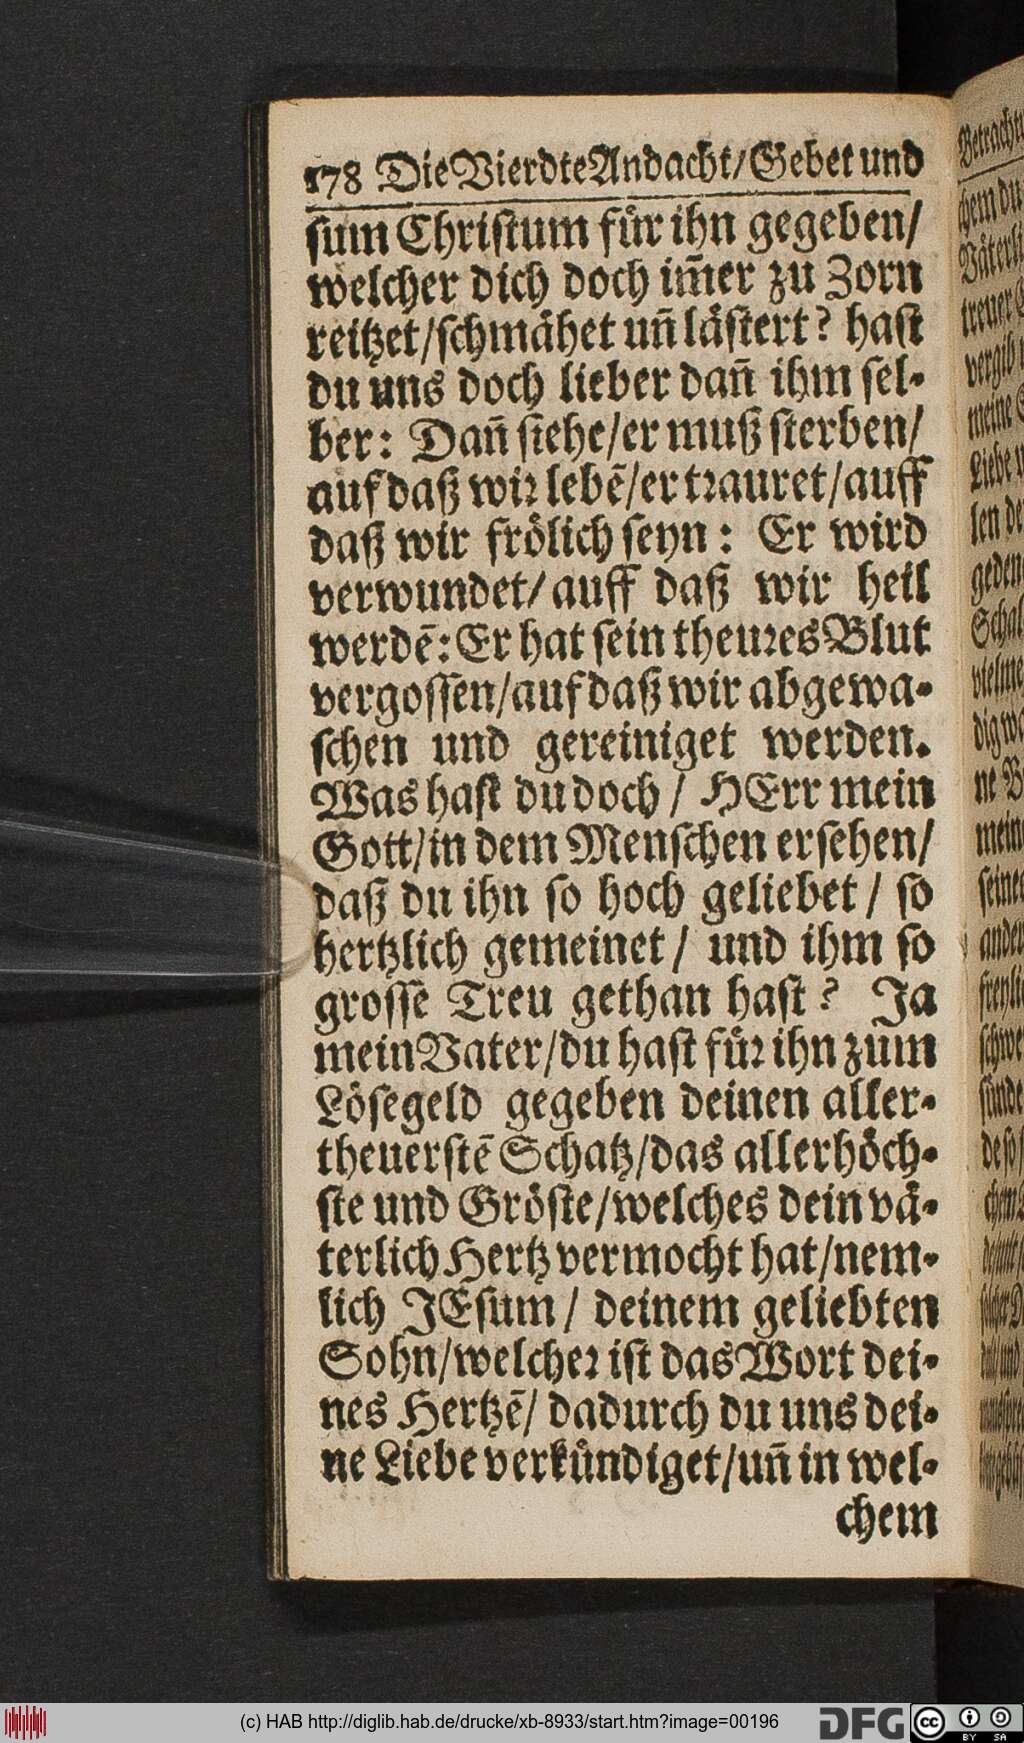 178 Die Vierdte Andacht/ Gebet und
sum Christum fuͤr ihn gegeben/
welcher dich doch im̃er zu Zorn
reitzet/schmaͤhet uñ laͤstert? hast
du uns doch lieber dañ ihm sel-
ber: Dañ siehe/er muß sterben/
auf daß wir lebẽ/er trauret/auff
daß wir froͤlich seyn: Er wird
verwundet/ auff daß wir heil
werdẽ: Er hat sein theures Blut
vergossen/auf daß wir abgewa-
schen und gereiniget werden.
Was hast du doch / HErr mein
Gott/in dem Menschen ersehen/
daß du ihn so hoch geliebet / so
hertzlich gemeinet / und ihm so
grosse Treu gethan hast? Ja
mein Vater/du hast fuͤr ihn zum
Loͤsegeld gegeben deinen aller-
theuerstẽ Schatz/das allerhoͤch-
ste und Groͤste/welches dein vaͤ-
terlich Hertz vermocht hat/nem-
lich JEsum / deinem geliebten
Sohn/welcher ist das Wort dei-
nes Hertzẽ/ dadurch du uns dei-
ne Liebe verkuͤndiget/uñ in wel-
chem
(c) HAB http://diglib.hab.de/drucke/xb-8933/start.htm?image=00196
DFG
cc BY SA